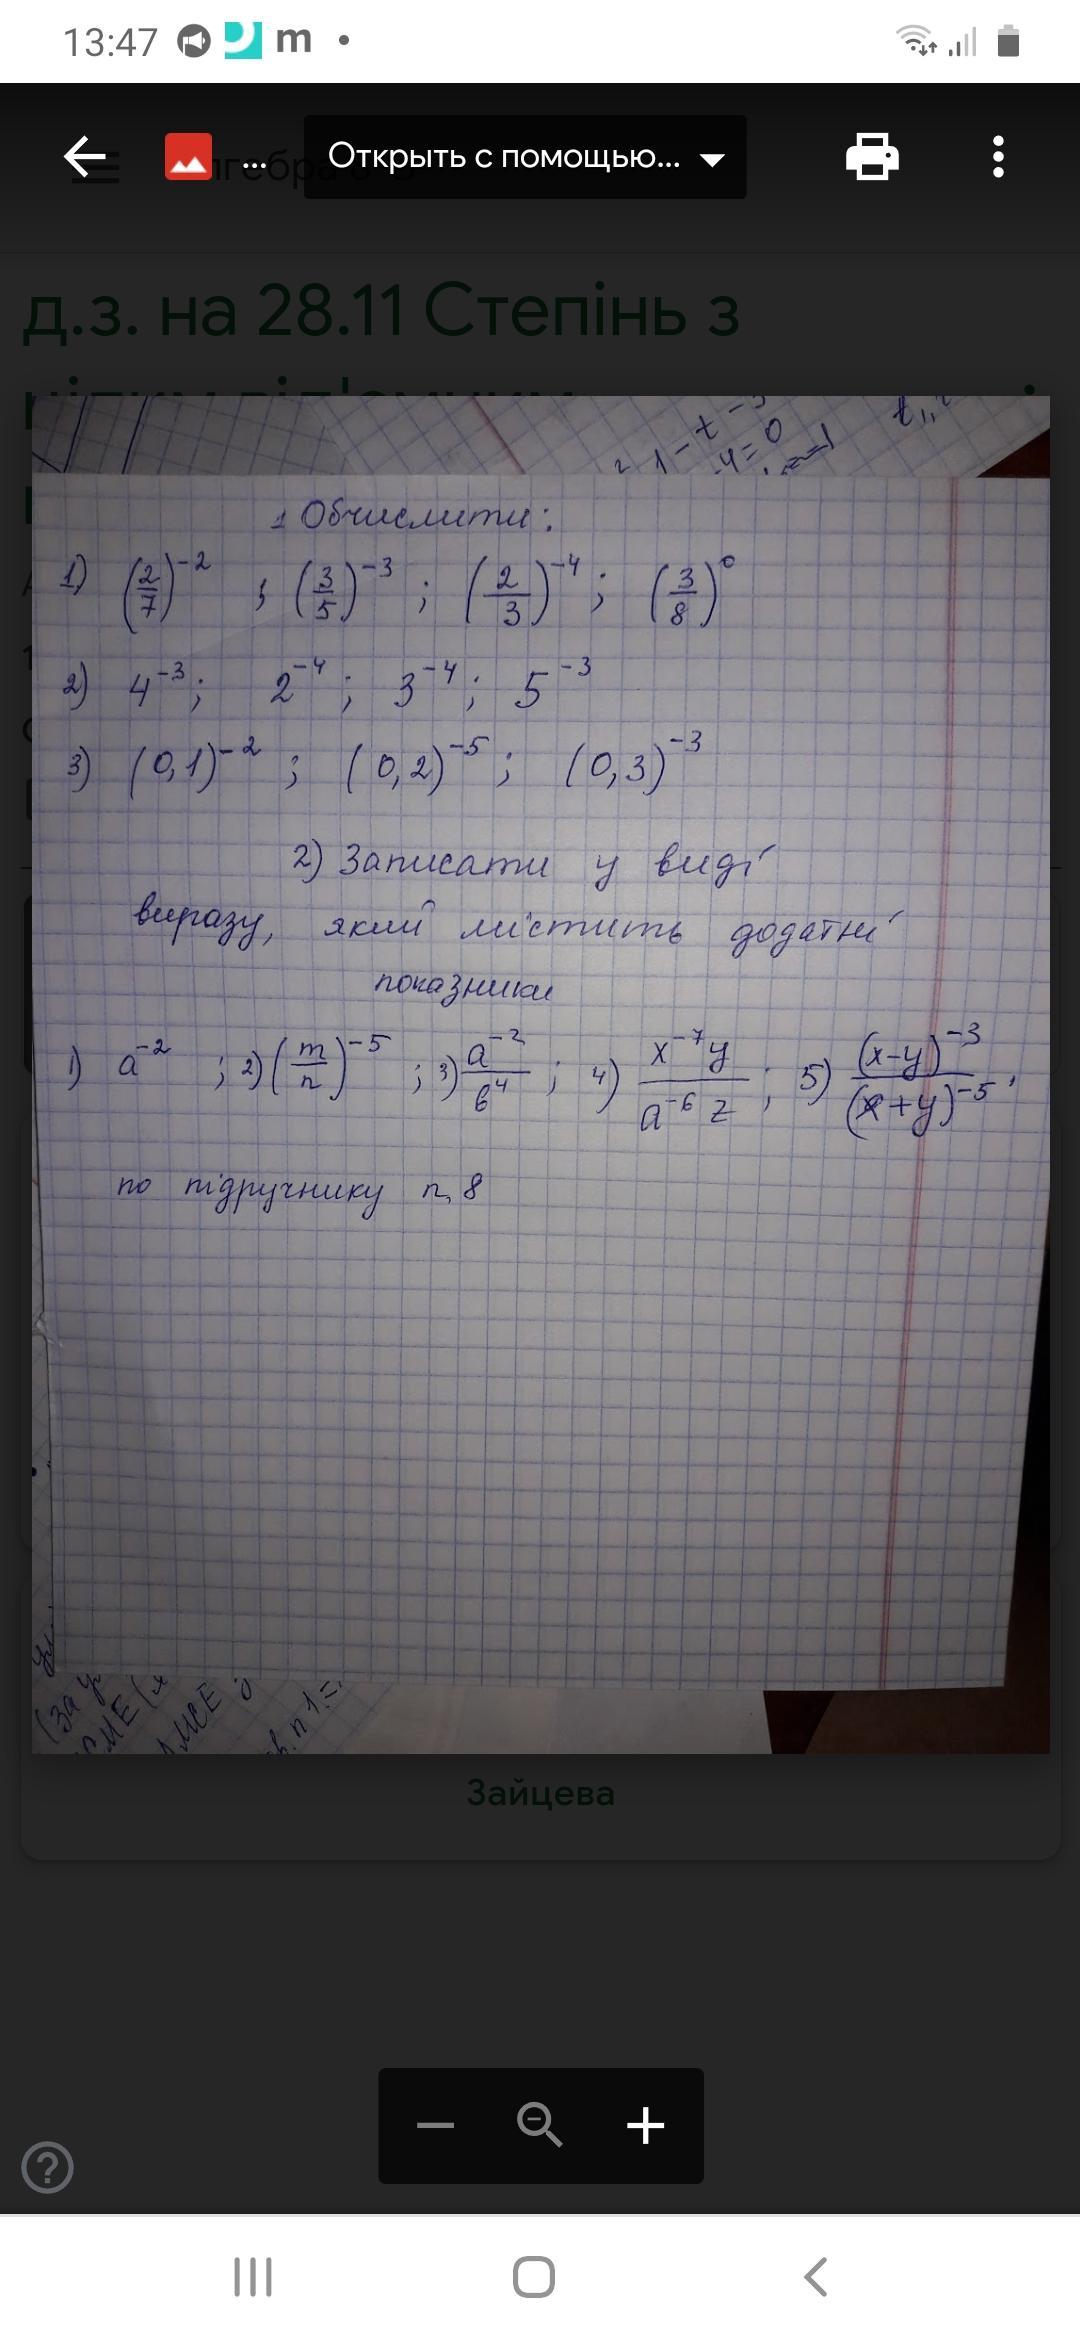 13:47 m
Открыть с помощью...
д.з. на 28.11 Степінь з
1 Обчислити:
1) (2/7)^-2 ; (3/5)^-3 ; (2/3)^-4 ; (3/8)^0
2) 4^-3 ; 2^-4 ; 3^-4 ; 5^-3
3) (0,1)^-2 ; (0,2)^-5 ; (0,3)^-3
2) Записати у виді
виразу, який містить додатні
показники
1) a^-2 ; 2) (m/n)^-5 ; 3) a^-2/b^4 ; 4) x^-7 y/a^-6 z ; 5) (x-y)^-3/(x+y)^-5 ,
по підручнику п, 8
Зайцева